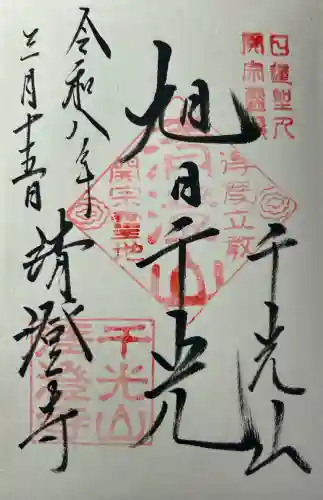 日蓮聖人
開宗靈場
千光山
得度立教
旭日千光
清澄山
開宗聖地
千光山
清澄寺
令和八年
三月十五日
清澄寺